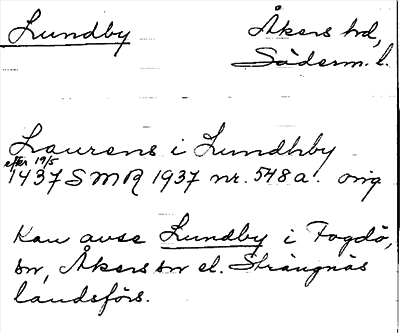 Lundby
Åkers hd,
Söderm. l.
Laurens i Lundhby
efter 19/5
1437 SMR 1937 nr. 548a. orig
Kan avse Lundby i Fogdö,
sn, Åkers sn el. Strängnäs
landsförs.